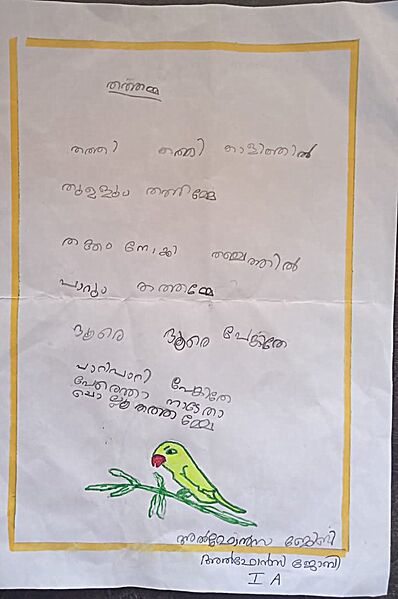 തത്തമ്മ
തത്തി തത്തി
തുള്ളും തത്തമ്മേ
തക്കം നോക്കി തഞ്ചത്തിൽ
പാറും തത്തമ്മേ
ദൂരെ ദൂരെ പോകുന്നതേ
പാറിപാറി
പേരെന്താ നാടേതാ
ചൊല്ലൂ തത്തമ്മേ
അൽഫോൻസ ജോബി
അൽഫോൻസ ജോബി
I A